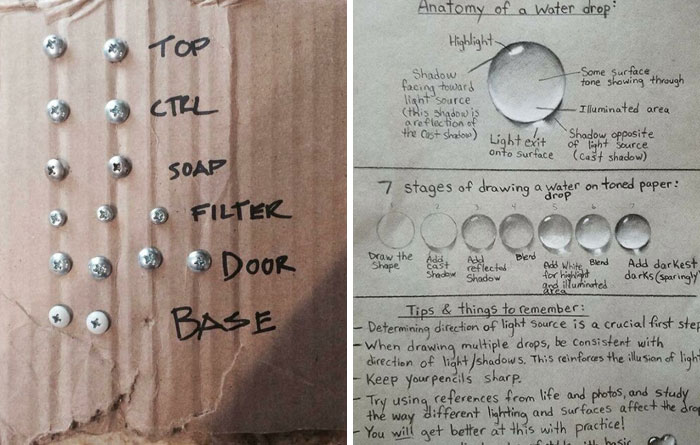 TOP
CTRL
SOAP
FILTER
DOOR
BASE
Anatomy of a water drop:
Highlight
Shadow
facing toward
light source
(this shadow is
a reflection of
the cast shadow)
Some surface
tone showing through
Illuminated area
Shadow opposite
of light source
(cast shadow)
Light exit
onto surface
7 stages of drawing a water on toned paper:
drop
1 2 3 4 5 6 7
Draw the
shape
Add
cast
shadow
Add
reflected
shadow
Blend
Add white
for highlight
and illuminated
area
Blend
Add darkest
darks (sparingly)
Tips & things to remember:
- Determining direction of light source is a crucial first step
- When drawing multiple drops, be consistent with
direction of light/shadows. This reinforces the illusion of ligh
- Keep your pencils sharp.
- Try using references from life and photos, and study
the way different lighting and surfaces affect the drop
- You will get better at this with practice!
with basic